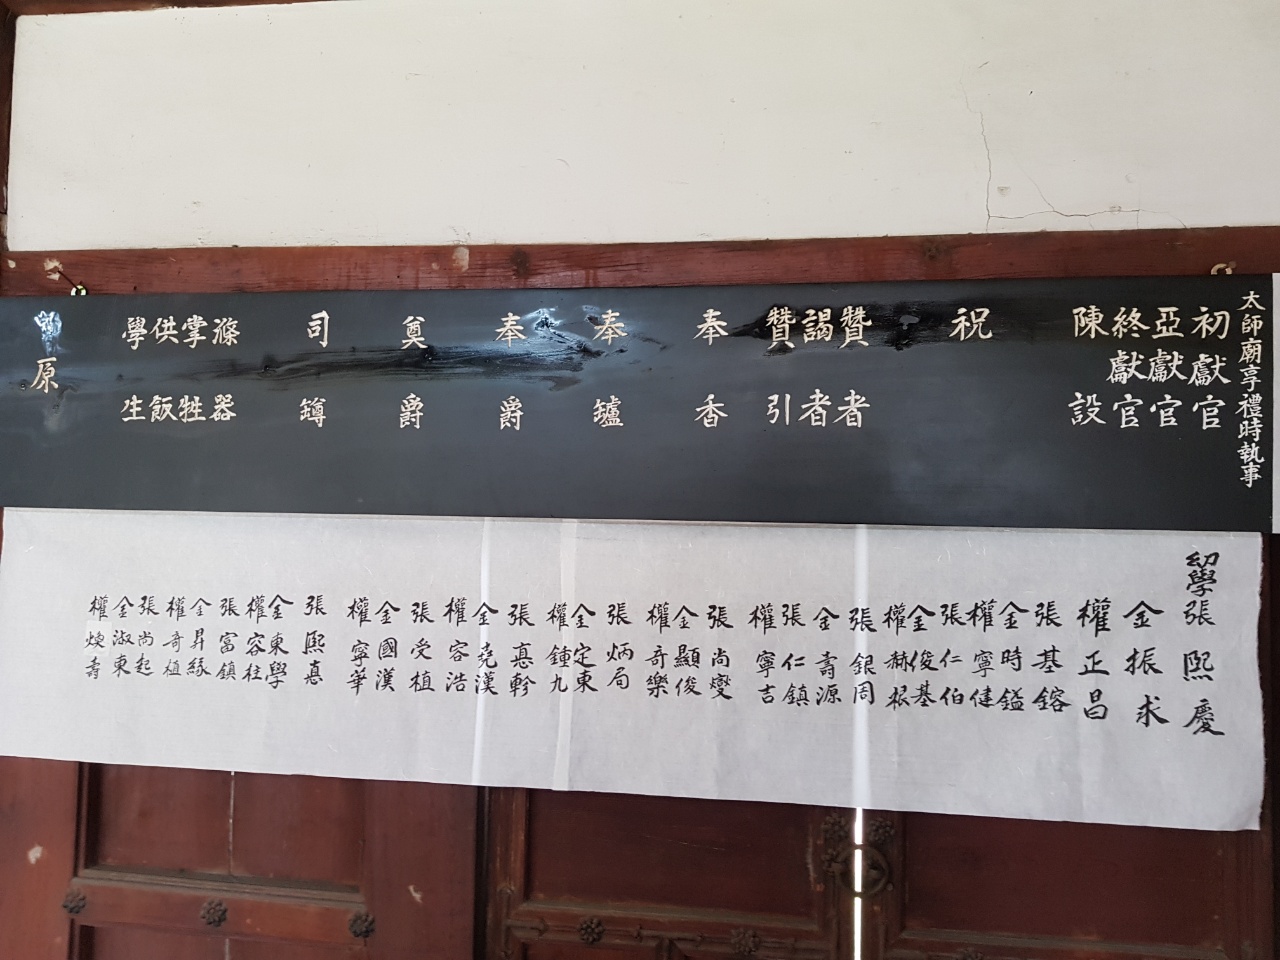 太師廟享禮時執事
初獻官
亞獻官
終獻官
陳設
祝
贊者
謁者
贊引
奉香
奉爐
奉爵
奠爵
司罇
滌器
掌牲
供飯
學生
原
幼學張熙慶
金振求
權正昌
張基鎔
金時鎰
權寧健
張仁伯
金俊基
權赫根
張銀周
金壽源
張仁鎮
權寧吉
張尚燮
金顯俊
權奇樂
張炳局
金定東
權鍾九
張憙軫
金堯漢
權容浩
張受植
金國漢
權寧華
張熙憙
金東學
權容柱
張富鎮
金昇緣
權奇植
張尚起
金淑東
權焕壽